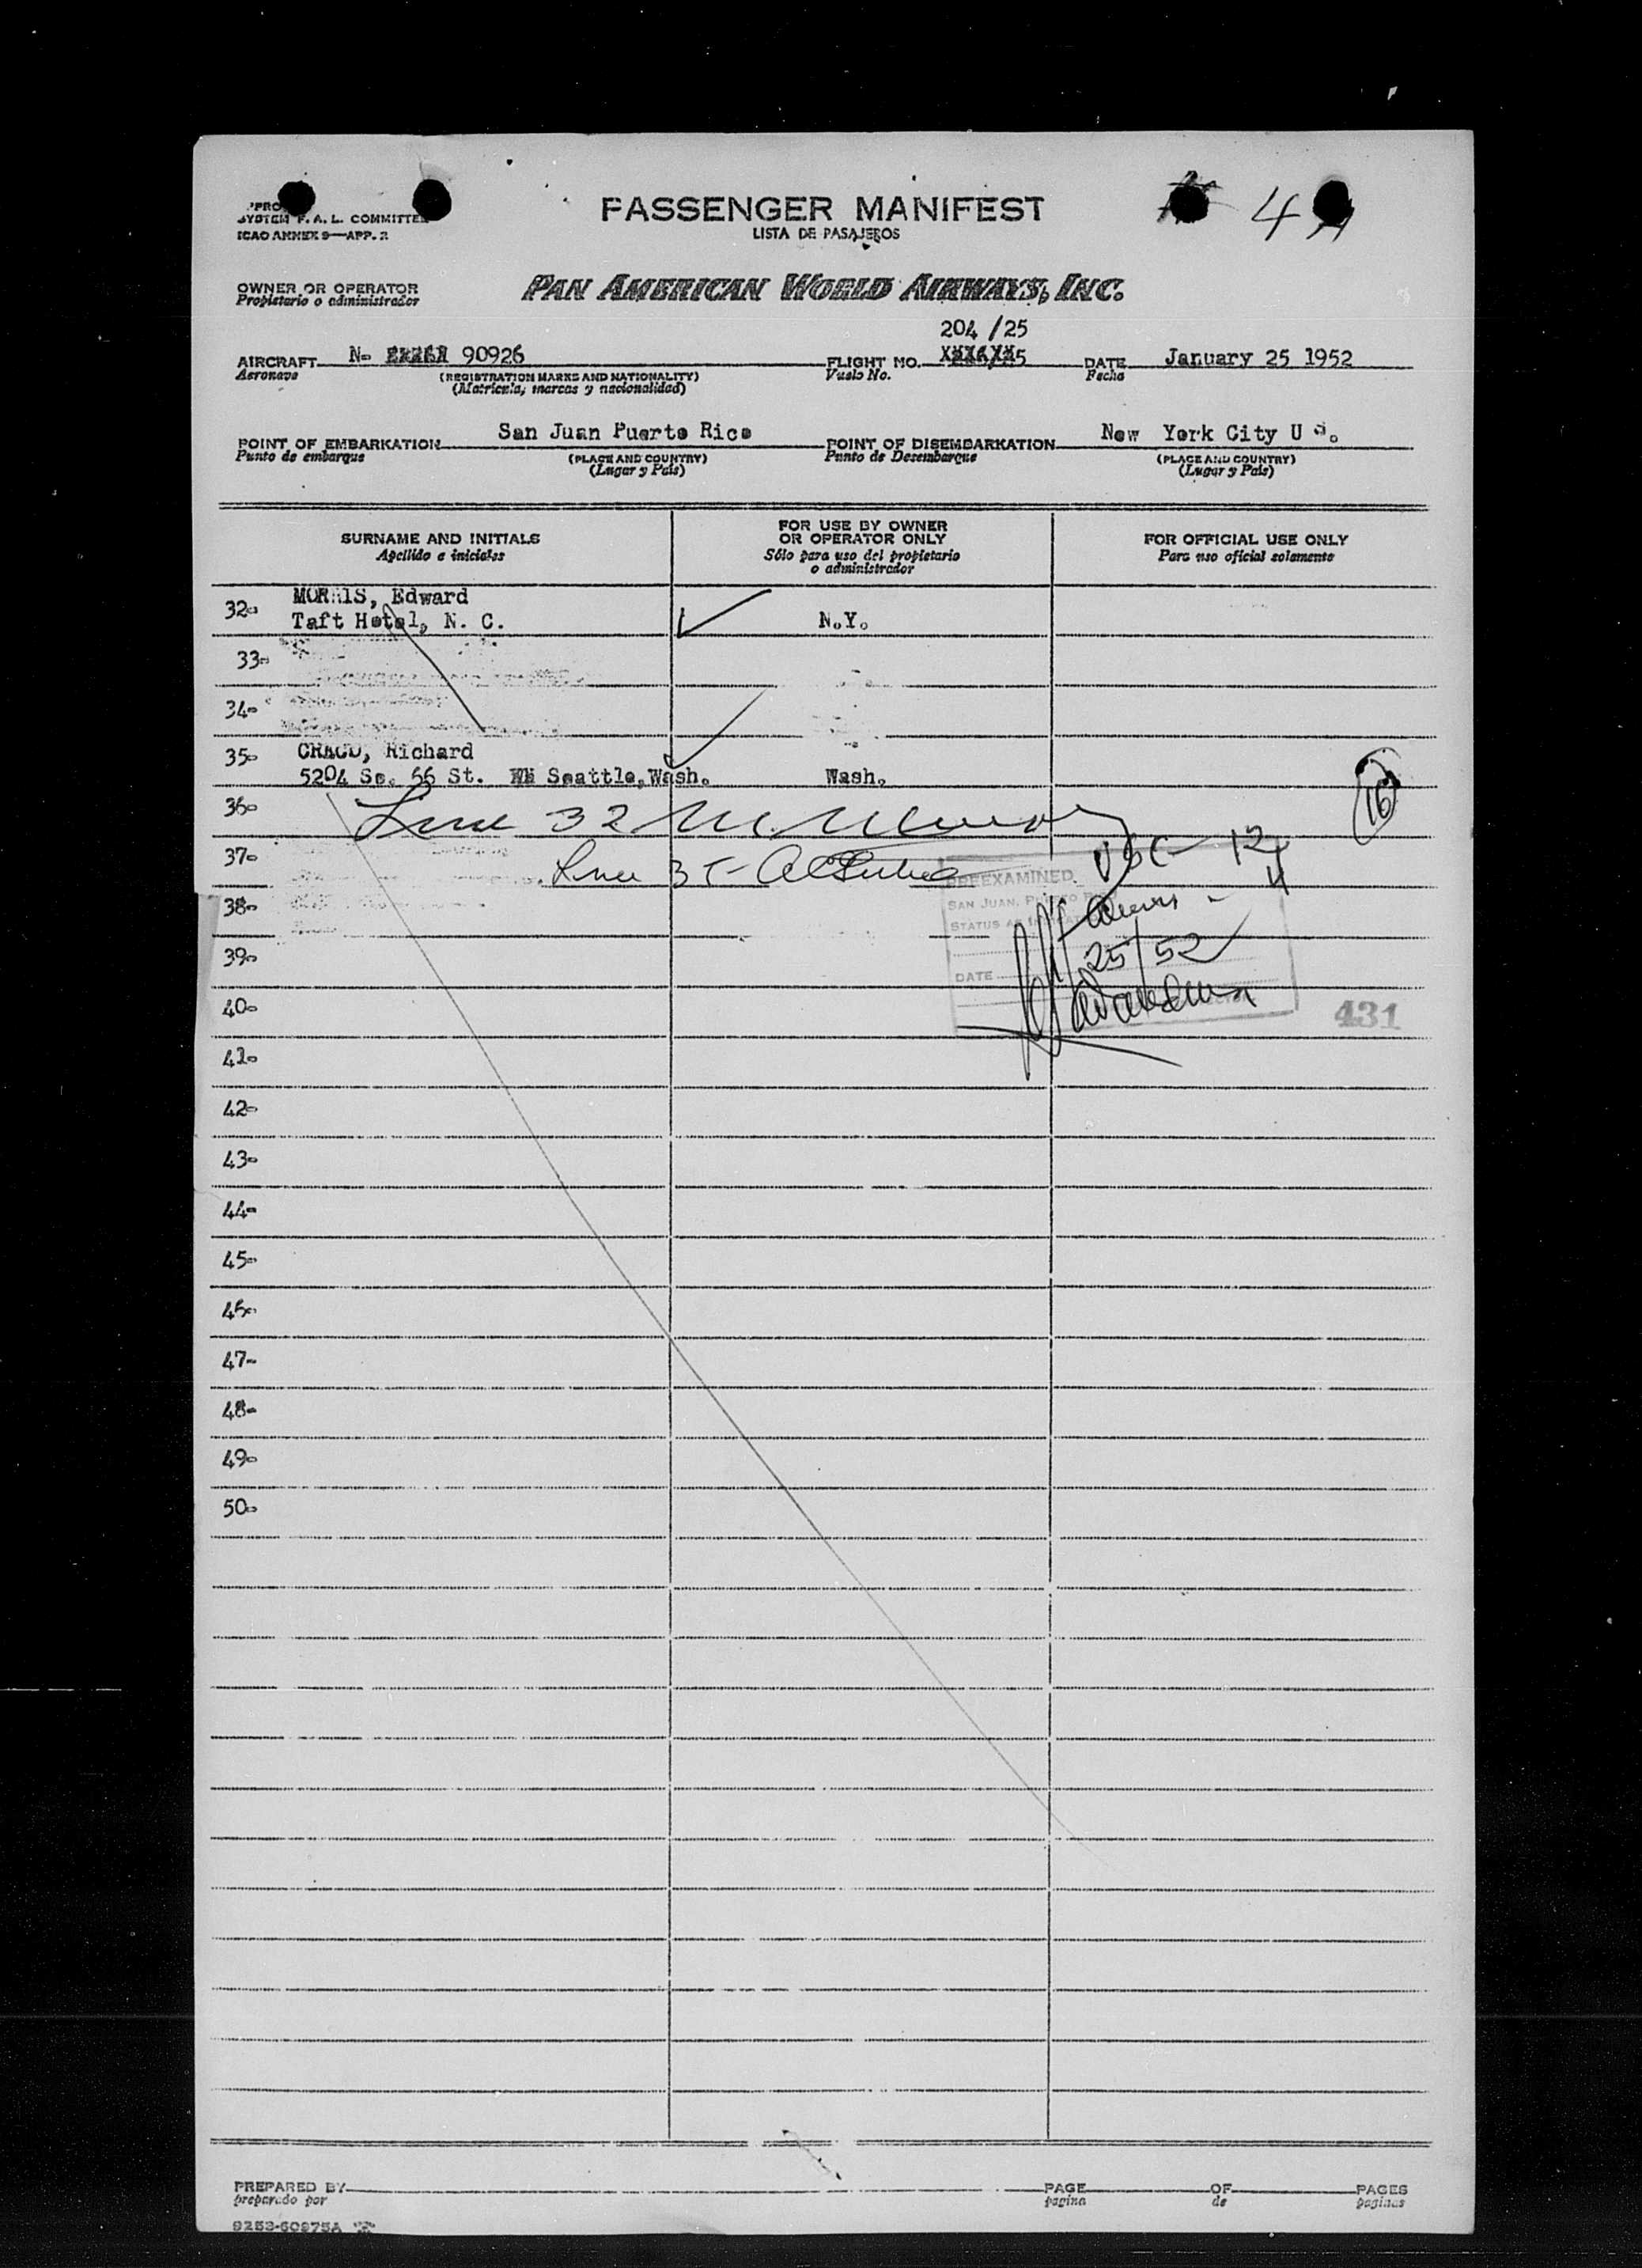 SYSTEM F. A. L. COMMITTEE
ICAO ANNEX 9—APP. 2
PASSENGER MANIFEST
LISTA DE PASAJEROS
4
OWNER OR OPERATOR
Propietario o administrador
PAN AMERICAN WORLD AIRWAYS, INC.
204 /25
AIRCRAFT N- 90926 FLIGHT NO. DATE January 25 1952
Aeronave (REGISTRATION MARKS AND NATIONALITY) Vuelo No. Fecha
(Matricula, marcas y nacionalidad)
POINT OF EMBARKATION San Juan Puerto Rico POINT OF DISEMBARKATION New York City U S.
Punto de embarque (PLACE AND COUNTRY) Punto de Desembarque (PLACE AND COUNTRY)
(Lugar y País) (Lugar y País)
SURNAME AND INITIALS FOR USE BY OWNER OR OPERATOR ONLY FOR OFFICIAL USE ONLY
Apellido e iniciales Sólo para uso del propietario o administrador Para uso oficial solamente
32- MORRIS, Edward
Taft Hotel, N. C. N.Y.
33-
34-
35- CRAGD, Richard
5204 So. 66 St. Seattle, Wash. Wash.
36- Line 32
16
37- Line 35-
USC - 12
PREEXAMINED
SAN JUAN, PUERTO RICO
38- Aliens - 4
39- 25/52
DATE
40-
431
41-
42-
43-
44-
45-
46-
47-
48-
49-
50-
PREPARED BY PAGE OF PAGES
preparado por pagina de paginas
9253-60975A